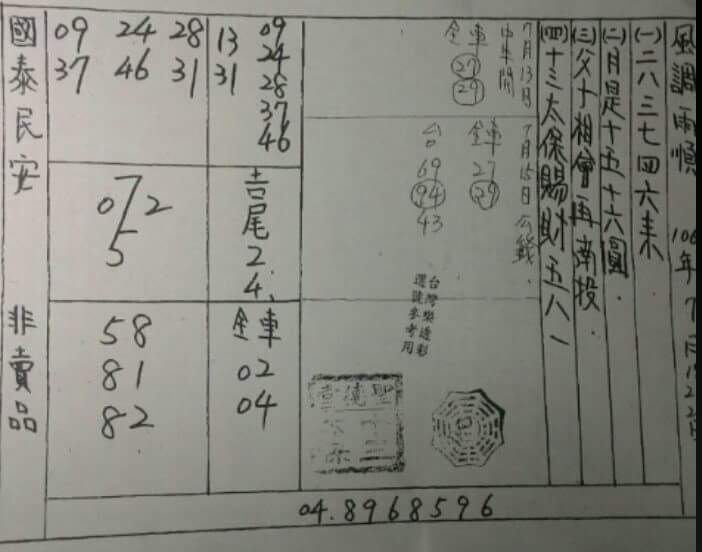 風調雨順 106年 7月
(一)二八三七四六来
(二)月是十五十六圓.
(三)父子相會再南投.
(四)十三太保賜財五八一
7月13日
中午開
全車
27
29
7月15日公籤.
全車
27
29
台
69
94
43
台灣樂透彩
選號參考用
09
24
28
37
46
13
31
吉尾24.
全車
02
04
09 24 28
37 46 31
072
5
58
81
82
國泰民安 非賣品
04.8968596